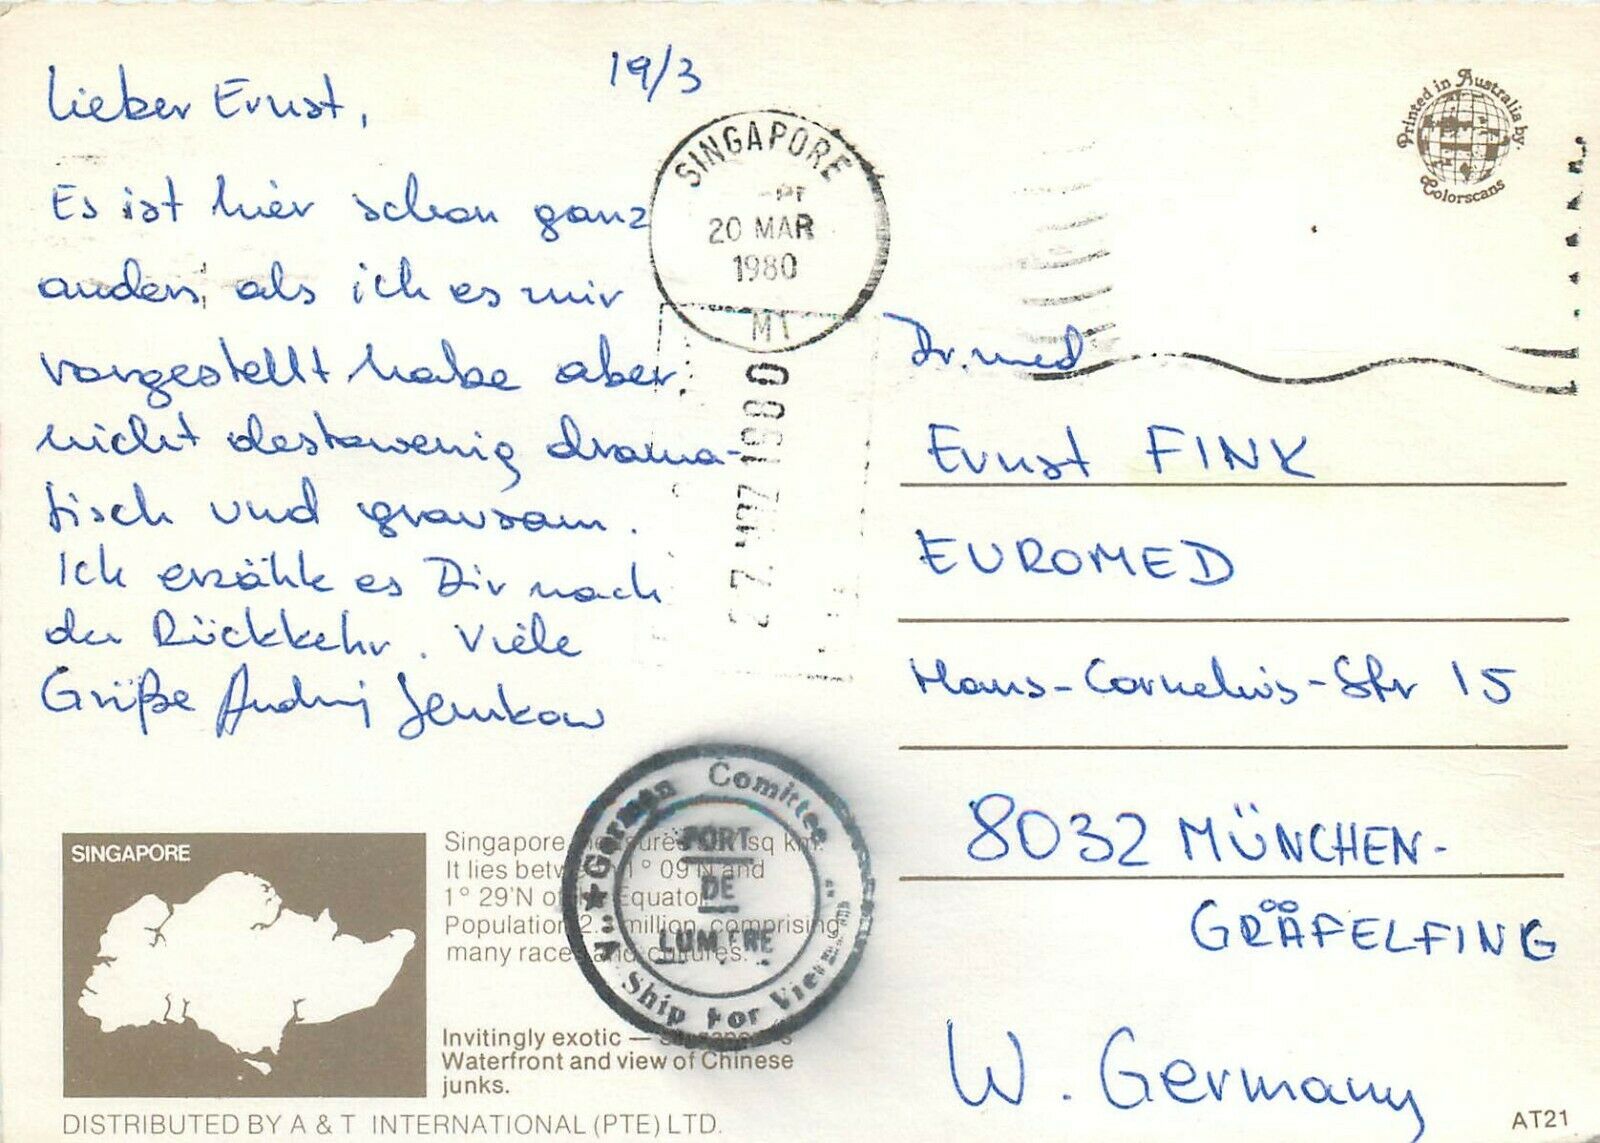 19/3
Lieber Ernst,
Es ist hier schon ganz
anders, als ich es mir
vorgestellt habe aber
nicht destowenig drama-
tisch und grausam.
Ich erzähle es Dir nach
der Rückkehr. Viele
Grüße Andrzej
SINGAPORE
20 MAR
1980
1980
Printed in Australia by.
Colorscans
Dr. med
Ernst FINK
EUROMED
Hans-Cornelius-Str 15
8032 MÜNCHEN-
GRÄFELFING
W. Germany
German Comittee
"A Ship for Vietnam"
PORT
DE
LUMIERE
SINGAPORE
Singapore measures sq km.
It lies between 1° 09'N and
1° 29'N of Equator.
Population 2. million, comprising
many races and cultures.
Invitingly exotic — Singapore's
Waterfront and view of Chinese
junks.
DISTRIBUTED BY A & T INTERNATIONAL (PTE) LTD.
AT21